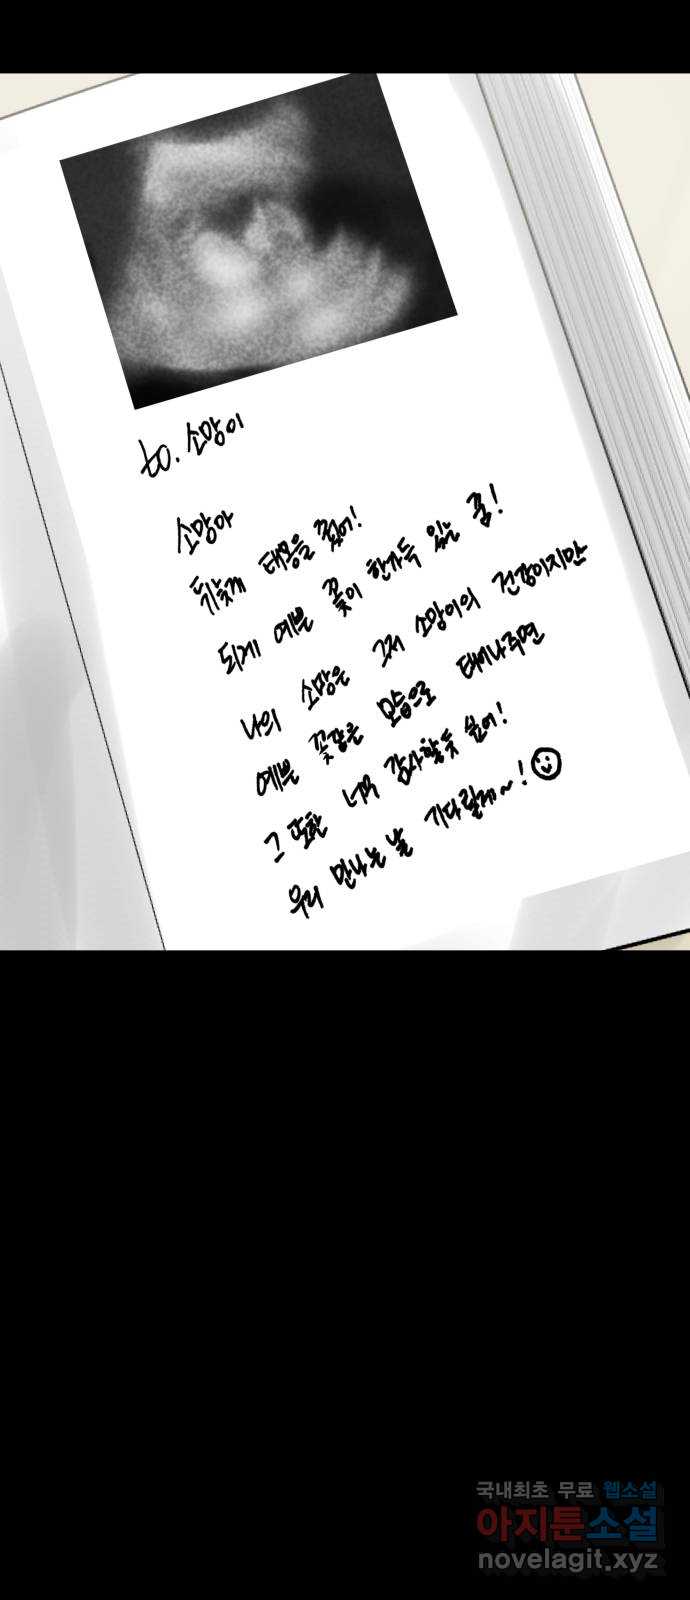 to. 소망이
소망아
뒤늦게 태몽을 꿨어!
되게 예쁜 꽃이 한가득 있는 꿈!
나의 소망은 그저 소망이의 건강이지만
예쁜 꽃같은 모습으로 태어나주면
그 또한 너무 감사할듯 싶어!
우리 만나는 날 기다릴게~!
국내최초 무료 웹소설
아지툰소설
novelagit.xyz